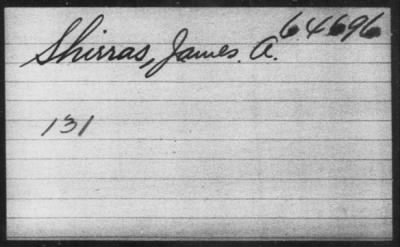 Shirras, James. A. 64696
131